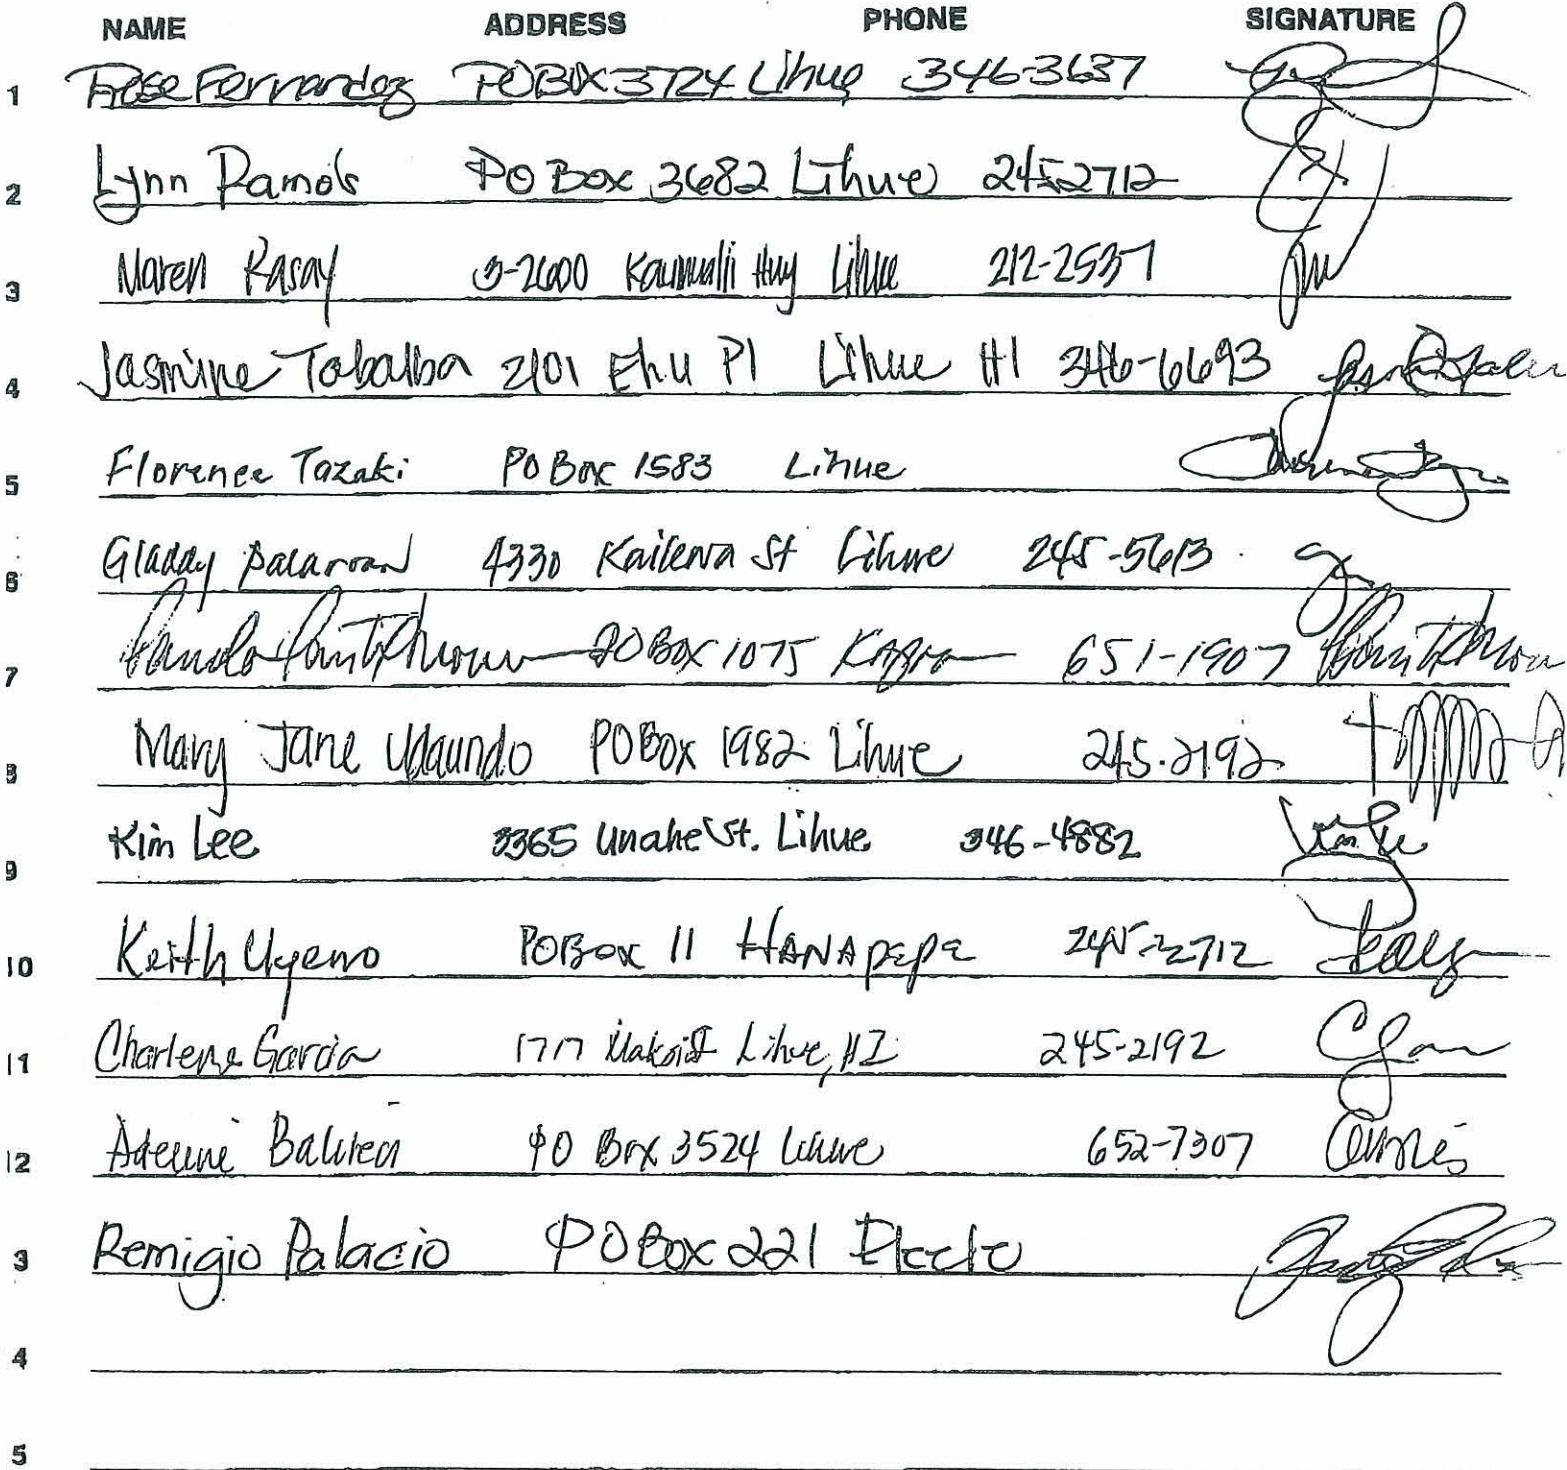 NAME ADDRESS PHONE SIGNATURE
1 Rose Fernandez PO BOX 3724 Lihue 346-3637
2 Lynn Ramos PO Box 3682 Lihue 245 2712
3 Maren Rasay 3-2600 Kaumualii Hwy Lihue 212-2537
4 Jasmine Tabalba 2101 Ehu Pl Lihue HI 346-6693
5 Florence Tazaki PO Box 1583 Lihue
6 4330 St Lihue 245-5613
7 PO Box 1075 651-1907
8 Mary Jane Udaundo PO Box 1982 Lihue 245.2192
9 Kim Lee 3365 Unahe St. Lihue 346-4882
10 Keith Uyeno PO Box 11 HANAPEPE 245-2712
11 Charlene Garcia 1717 Lihue, HI 245-2192
12 PO Box 3524 Lihue 652-7307
3 Remigio Palacio PO Box 221
4
5